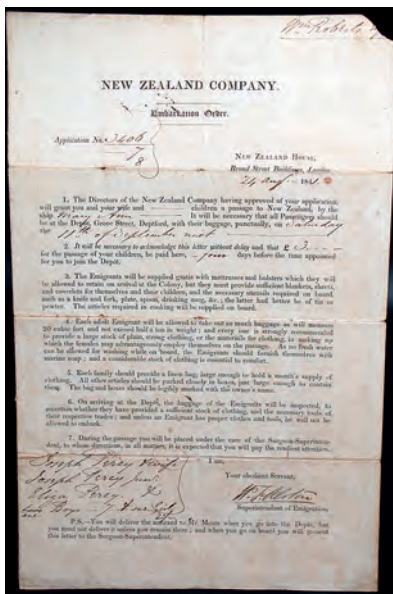 Wm Roberts
NEW ZEALAND COMPANY.
Embarkation Order.
Application No. 3406
7
8
NEW ZEALAND HOUSE,
Broad Street Buildings, London
24 Aug 1841
1. The Directors of the New Zealand Company having approved of your application,
will grant you and your wife and children a passage to New Zealand, by the
ship Mary Ann It will be necessary that all Passengers should
be at the Depôt, Grove Street, Deptford, with their baggage, punctually, on Saturday
the 11th of September next
2. It will be necessary to acknowledge this letter without delay and that £ 3
for the passage of your children, be paid here, four days before the time appointed
for you to join the Depôt.
3. The Emigrants will be supplied gratis with mattrasses and bolsters which they will
be allowed to retain on arrival at the Colony, but they must provide sufficient blankets, sheets,
and coverlets for themselves and their children, and the necessary utensils required on board,
such as a knife and fork, plate, spoon, drinking mug, &c.; the latter had better be of tin or
pewter. The articles required in cooking will be supplied on board.
4. Each adult Emigrant will be allowed to take out as much baggage as will measure
20 cubic feet and not exceed half a ton in weight; and every one is strongly recommended
to provide a large stock of plain, strong clothing, or the materials for clothing, in making up
which the females may advantageously employ themselves on the passage. As no fresh water
can be allowed for washing while on board, the Emigrants should furnish themselves with
marine soap; and a considerable stock of clothing is essential to comfort.
5. Each family should provide a linen bag, large enough to hold a month's supply of
clothing. All other articles should be packed closely in boxes, just large enough to contain
them. The bag and boxes should be legibly marked with the owner's name.
6. On arriving at the Depôt, the baggage of the Emigrants will be inspected, to
ascertain whether they have provided a sufficient stock of clothing, and the necessary tools of
their respective trades; and unless an Emigrant has proper clothes and tools, he will not be
allowed to embark.
7. During the passage you will be placed under the care of the Surgeon-Superintendent,
dent, to whose directions, in all matters, it is expected that you will pay the readiest attention.
I am,
Joseph Percy
Joseph Percy junr
Your obedient Servant,
Eliza Percy
Superintendent of Emigration.
Boys
P.S.—You will deliver the annexed to Mr. Moore when you go into the Depôt, but
you need not deliver it unless you remain there; and when you go on board you will present
this letter to the Surgeon-Superintendent.